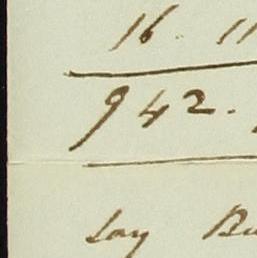 16. 11
942.
Say Bu